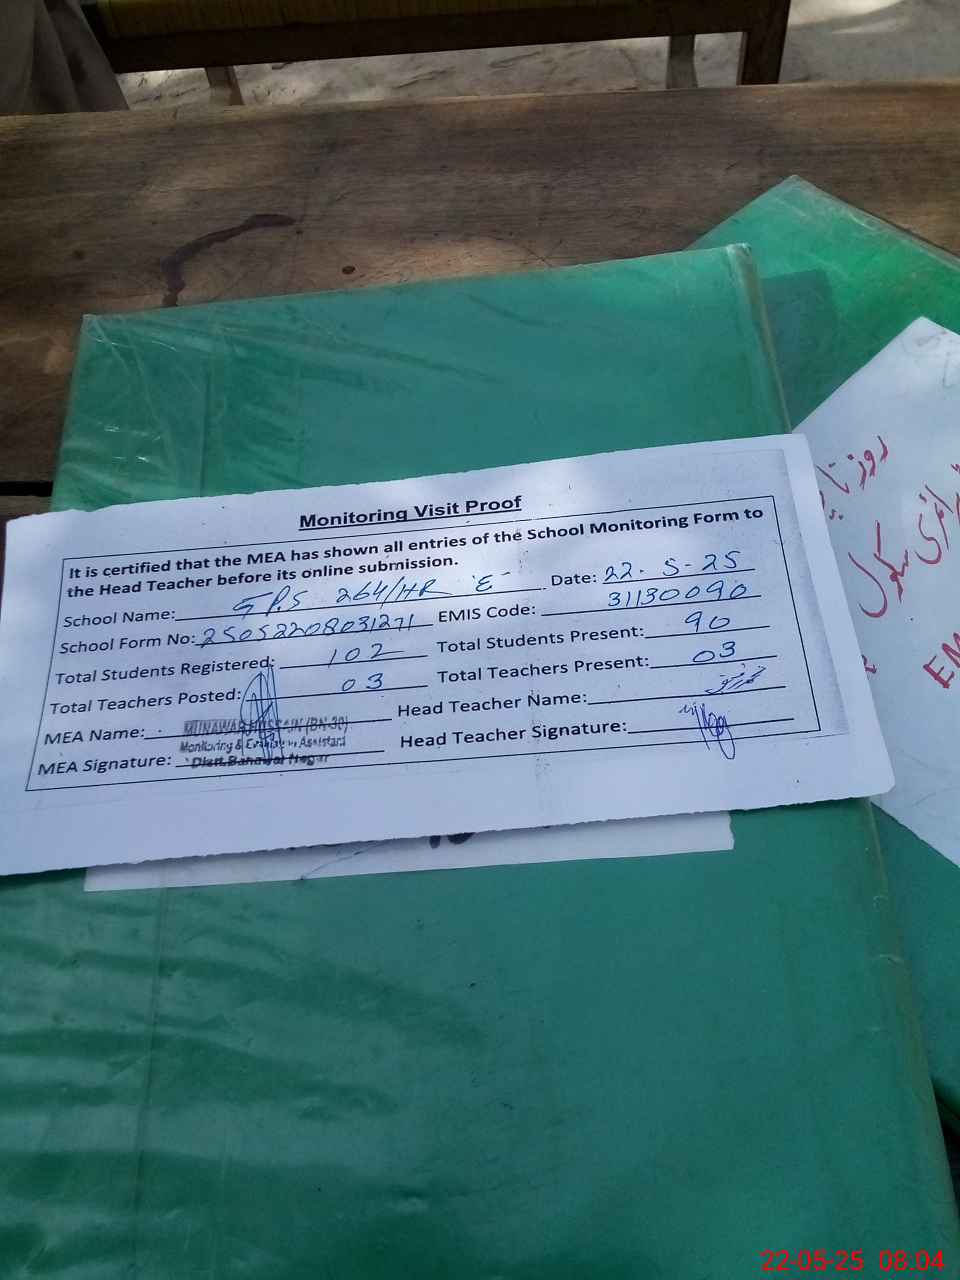 Monitoring Visit Proof
It is certified that the MEA has shown all entries of the School Monitoring Form to
the Head Teacher before its online submission.
School Name: GPS 264/HR E Date: 22-5-25
School Form No: 25052208031271 EMIS Code: 31130090
Total Students Registered: 102 Total Students Present: 90
Total Teachers Posted: 03 Total Teachers Present: 03
MEA Name: MUNAWAR HUSSAIN (BN-30) Head Teacher Name:
Monitoring & Evaluation Assistant
MEA Signature: Distt. Bahawal Nagar Head Teacher Signature:
سکول
EM
22-05-25 08:04